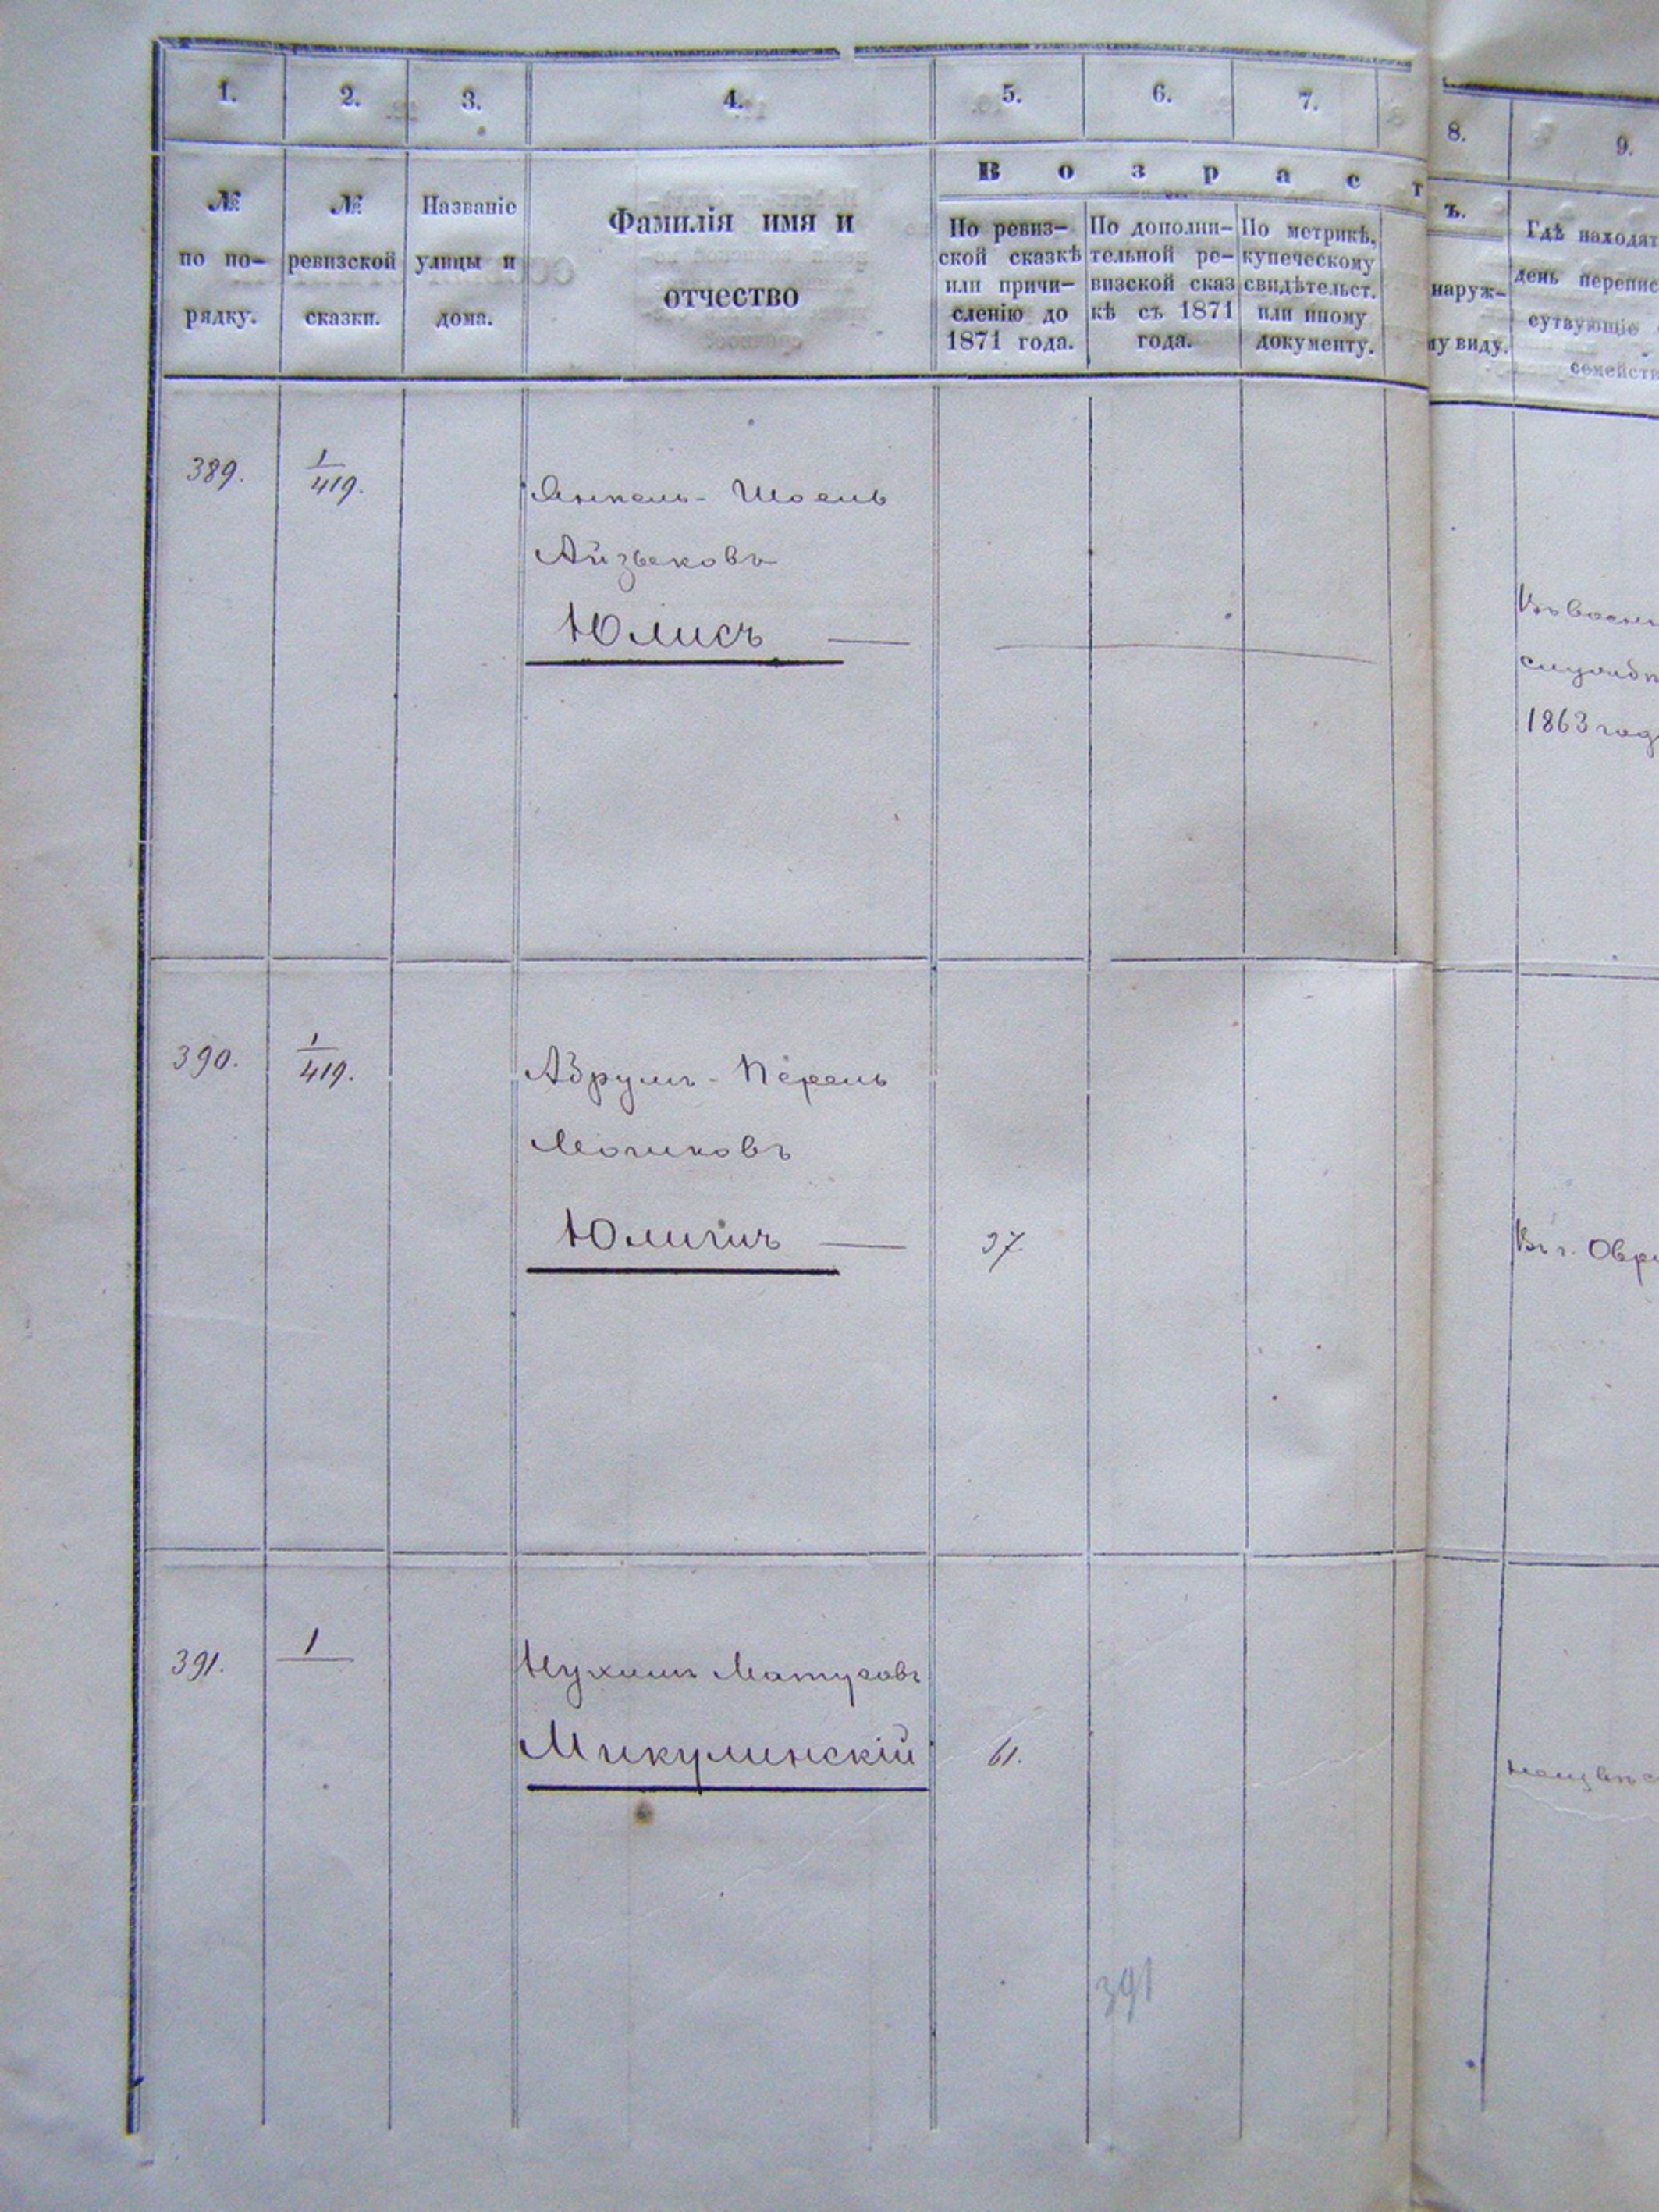 1. 2. 3. 4. 5. 6. 7. 8. 9.
№ по по-рядку.
№ ревизской сказки.
Названіе улицы и дома.
Фамилія имя и
отчество
В о з р а с т ъ.
По ревиз-
ской сказкѣ
или причи-
сленію до
1871 года.
По дополни-
тельной ре-
визской сказ
кѣ съ 1871
года.
По метрикѣ,
купеческому
свидѣтельст.
или иному
документу.
наруж-
му виду.
Гдѣ находят
день перепис
сутвующіе
семейств
389. 1/419.
Янкель-Шоель
Айзъковъ
Юлисъ —
Въ воен
служб
1863 год
390. 1/419.
Абрумъ-Перель
Мошковъ
Юлигичъ — 37.
Въ г. Овр
391. 1
Нухимъ Матусовъ
Микулинскій 61.
неизвѣс
391